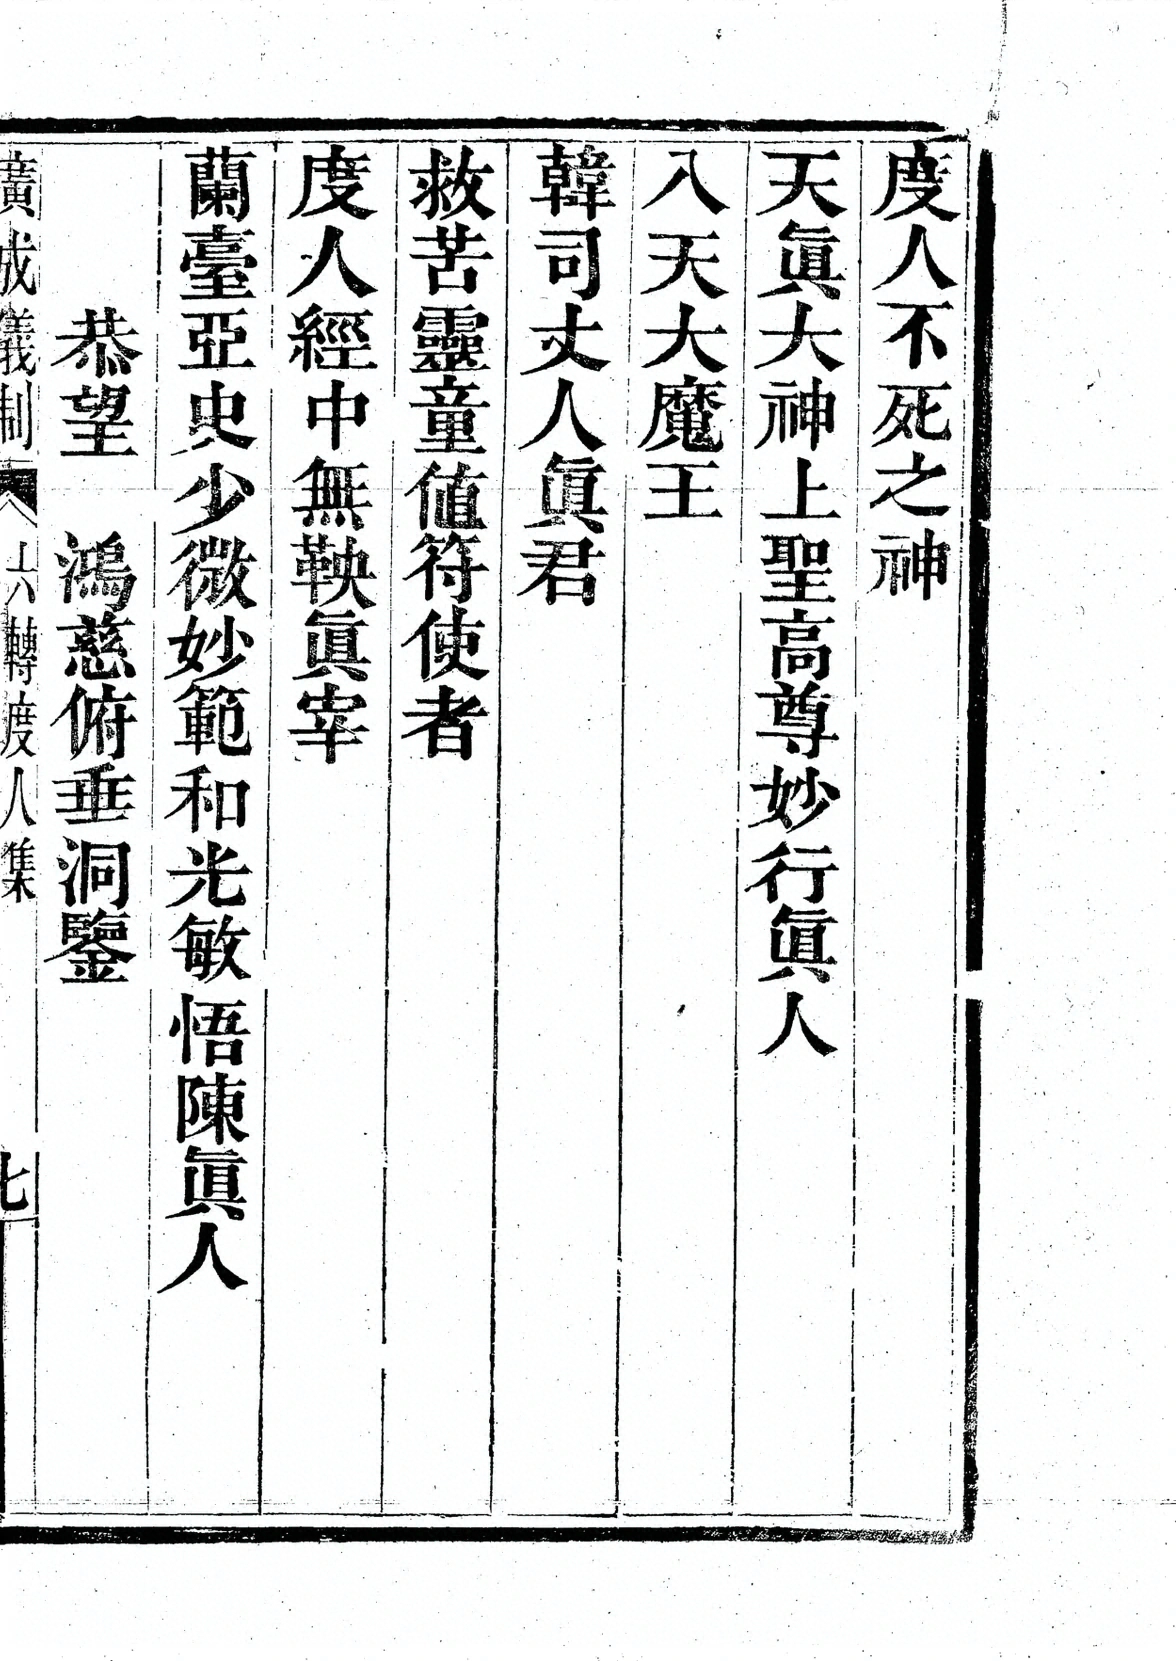 度人不死之神
天眞大神上聖高尊妙行眞人
八天大魔王
韓司丈人眞君
救苦靈童値符使者
度人經中無鞅眞宰
蘭臺亞史少微妙範和光敏悟陳眞人
恭望　鴻慈俯垂洞鑒
廣成儀制　六轉度人集　七